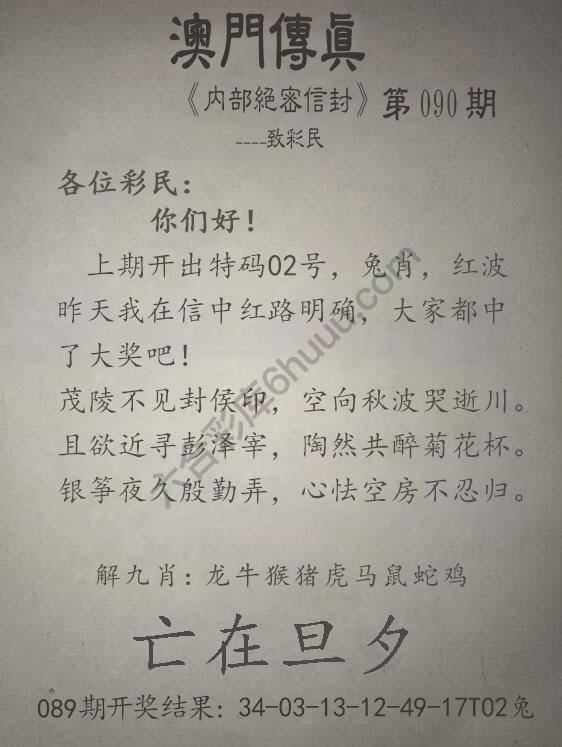 澳門傳眞
《内部絕密信封》第090期
----致彩民
各位彩民：
你们好！
上期开出特码02号，兔肖，红波
昨天我在信中红路明确，大家都中
了大奖吧！
茂陵不见封侯印，空向秋波哭逝川。
且欲近寻彭泽宰，陶然共醉菊花杯。
银筝夜久殷勤弄，心怯空房不忍归。
解九肖：龙牛猴猪虎马鼠蛇鸡
亡在旦夕
089期开奖结果：34-03-13-12-49-17T02兔
六合彩库6huuu.com